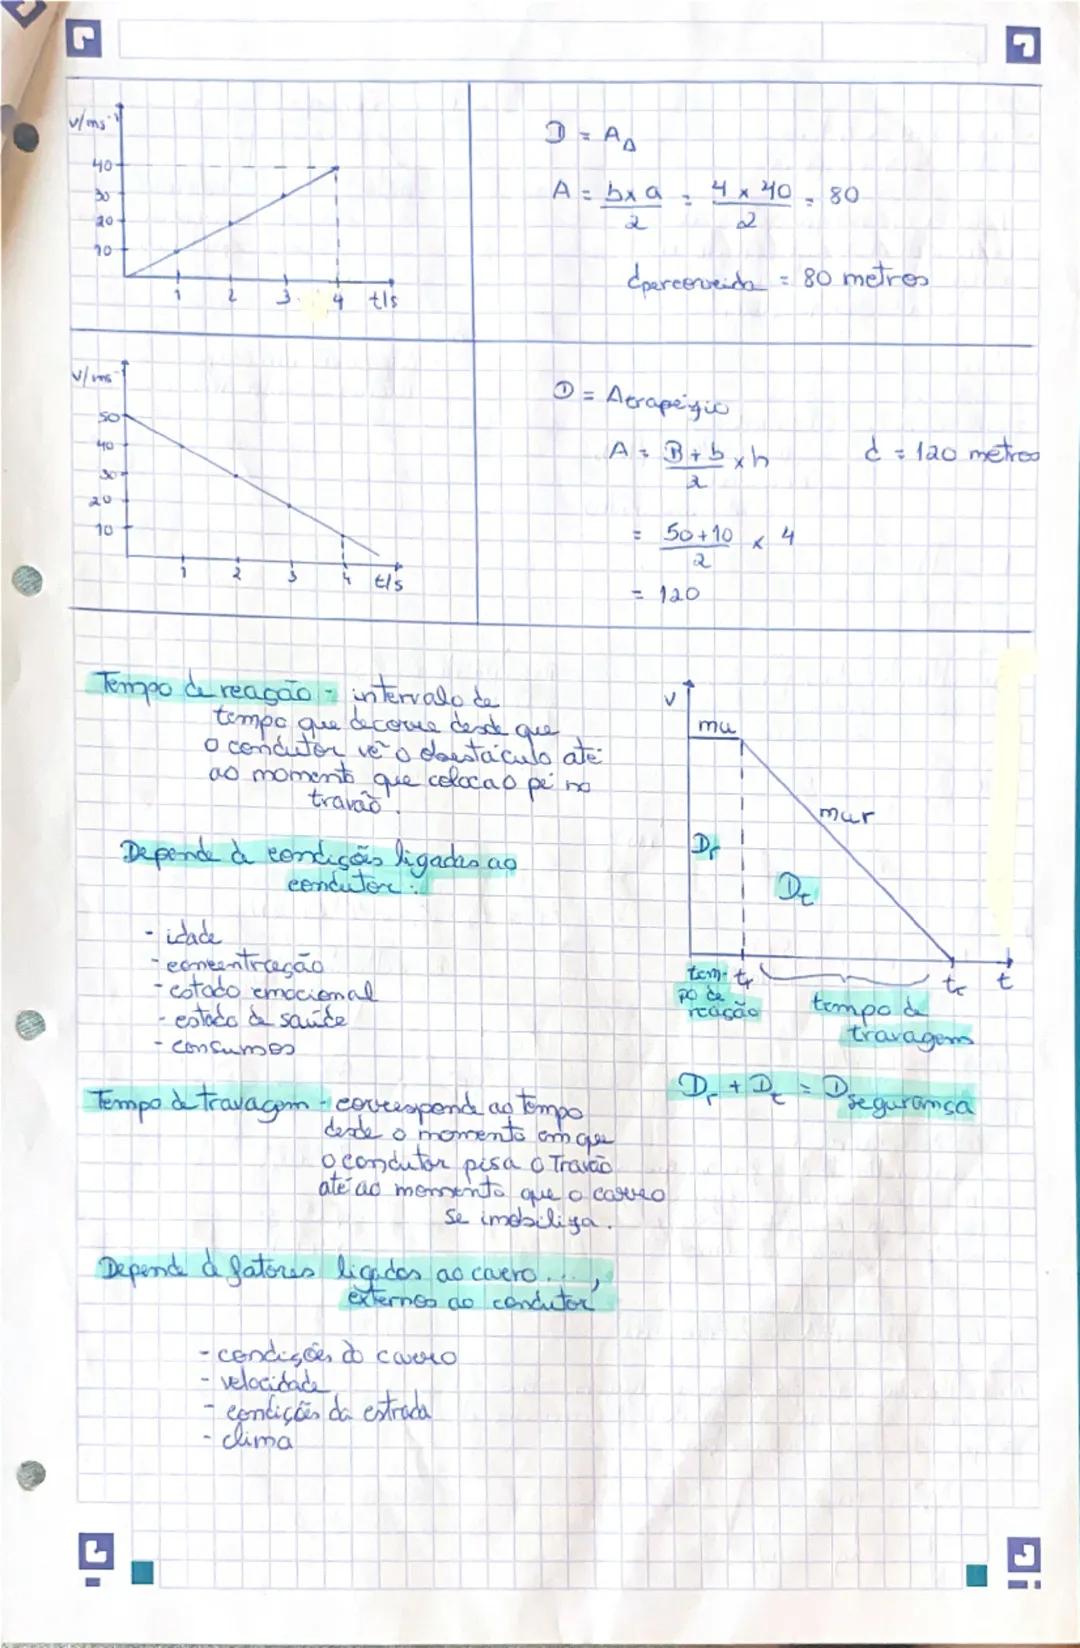 v/ms⁻¹
40
30
20
10
1 2 3 4 t/s
D = A△
A = b x a / 2 = 4 x 40 / 2 = 80
dpercorrida = 80 metros
v/ms⁻¹
50
40
30
20
10
1 2 3 4 t/s
D = Atrapézio
A = B + b / 2 x h
d = 120 metros
= 50 + 10 / 2 x 4
= 120
Tempo de reação - intervalo de
tempo que decorre desde que
o condutor vê o obstáculo até
ao momento que coloca o pé no
travão.
Depende de condições ligadas ao
condutor:
- idade
- concentração
- estado emocional
- estado de saúde
- consumos
v
mu
mur
Dr
Dt
tem- tr
po de
reação
tempo de
travagem
tc t
Dr + Dt = Dsegurança
Tempo de travagem - corresponde ao tempo
desde o momento em que
o condutor pisa o travão
até ao momento que o carro
se imobiliza.
Depende de fatores ligados ao carro...,
externos ao condutor
- condições do carro
- velocidade
- condições da estrada
- clima